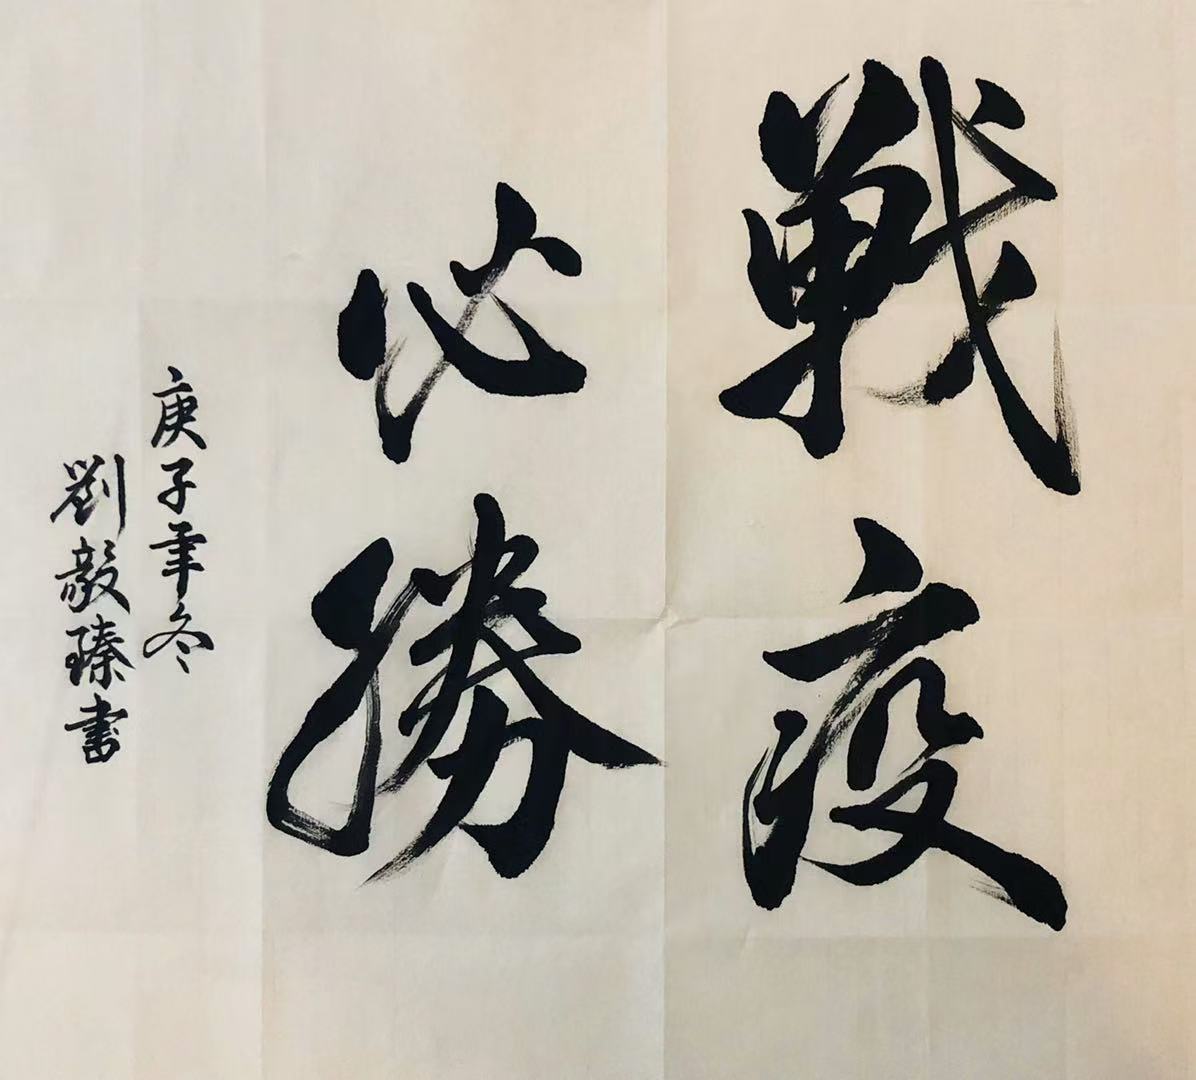 戰疫
必勝
庚子年冬
劉毅臻書